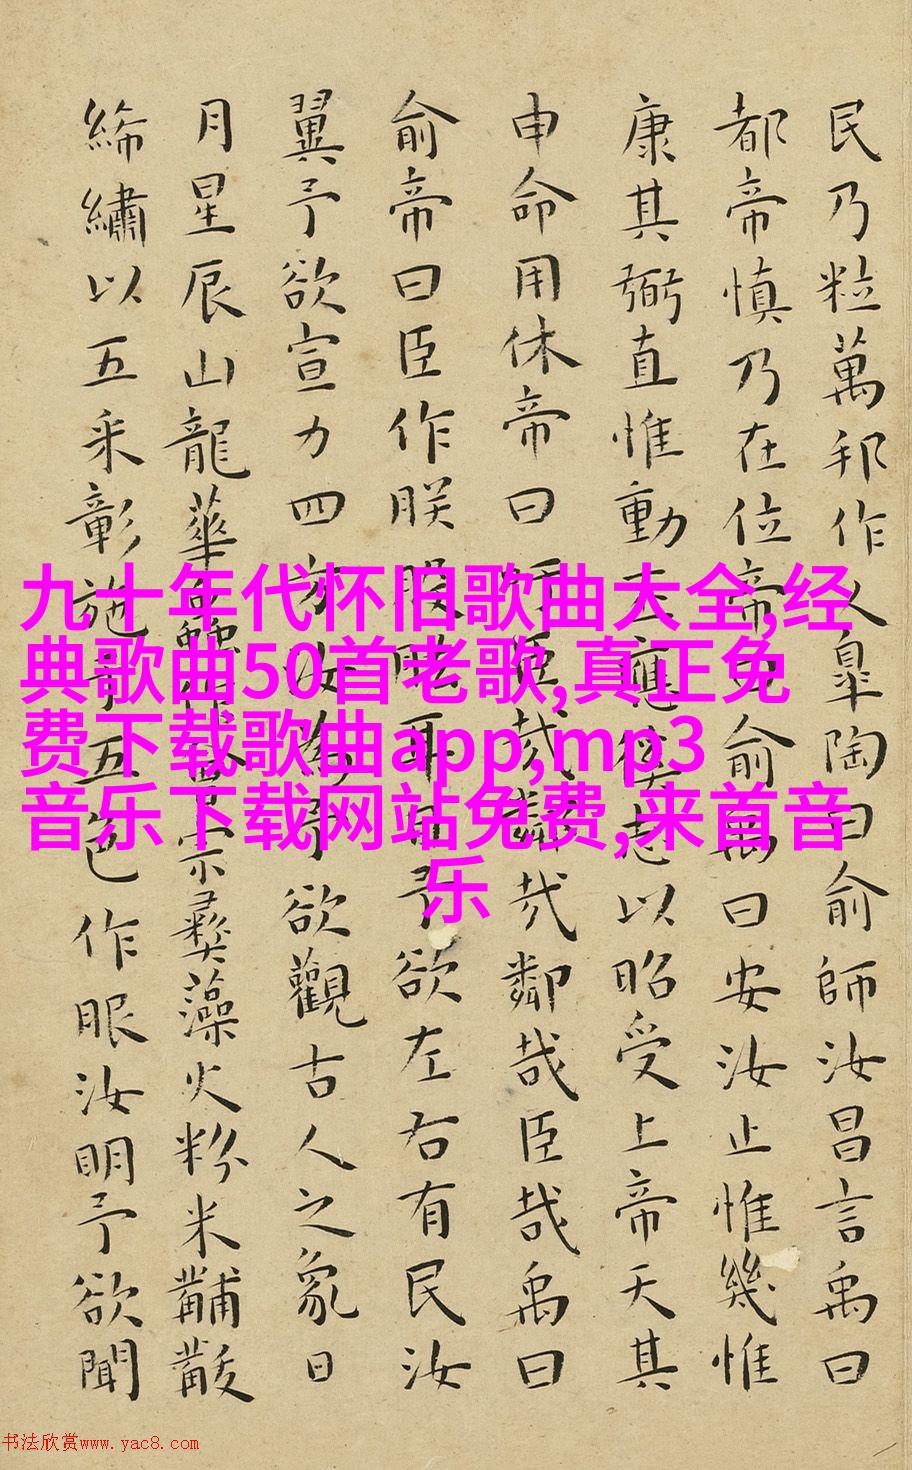 民乃粒萬邦作乂皐陶曰俞師汝昌言禹曰
都帝慎乃在位帝曰俞禹曰安汝止惟幾惟
康其弼直惟動丕應徯志以昭受上帝天其
申命用休帝曰吁臣哉鄰哉鄰哉臣哉禹曰
俞帝曰臣作朕股肱耳目予欲左右有民汝
翼予欲宣力四方汝為予欲觀古人之象日
月星辰山龍華蟲作會宗彝藻火粉米黼黻
絺繡以五采彰施于五色作服汝明予欲聞
九十年代怀旧歌曲大全,经
典歌曲50首老歌,真正免
费下载歌曲app,mp3
音乐下载网站免费,来首音
乐
书法欣赏www.yac8.com